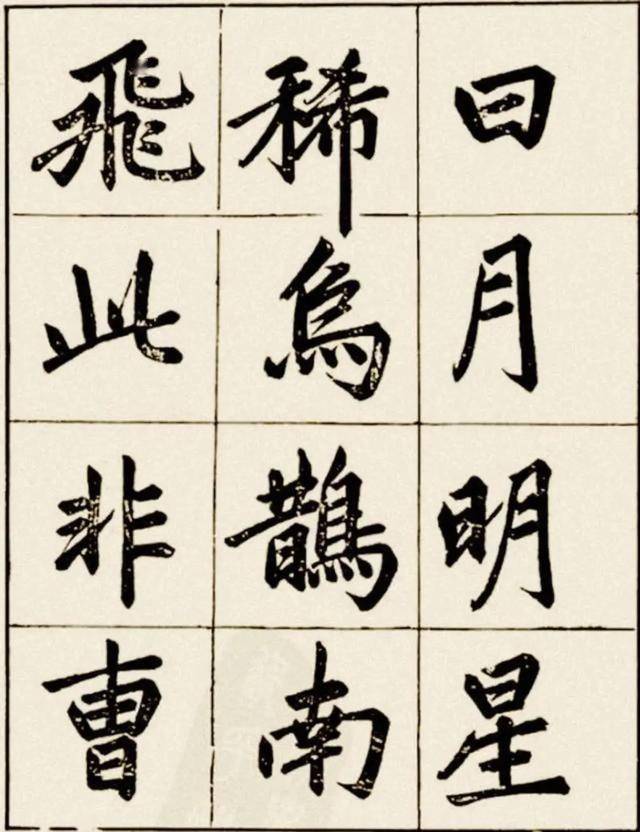 曰月明星
稀烏鵲南
飛此非曹